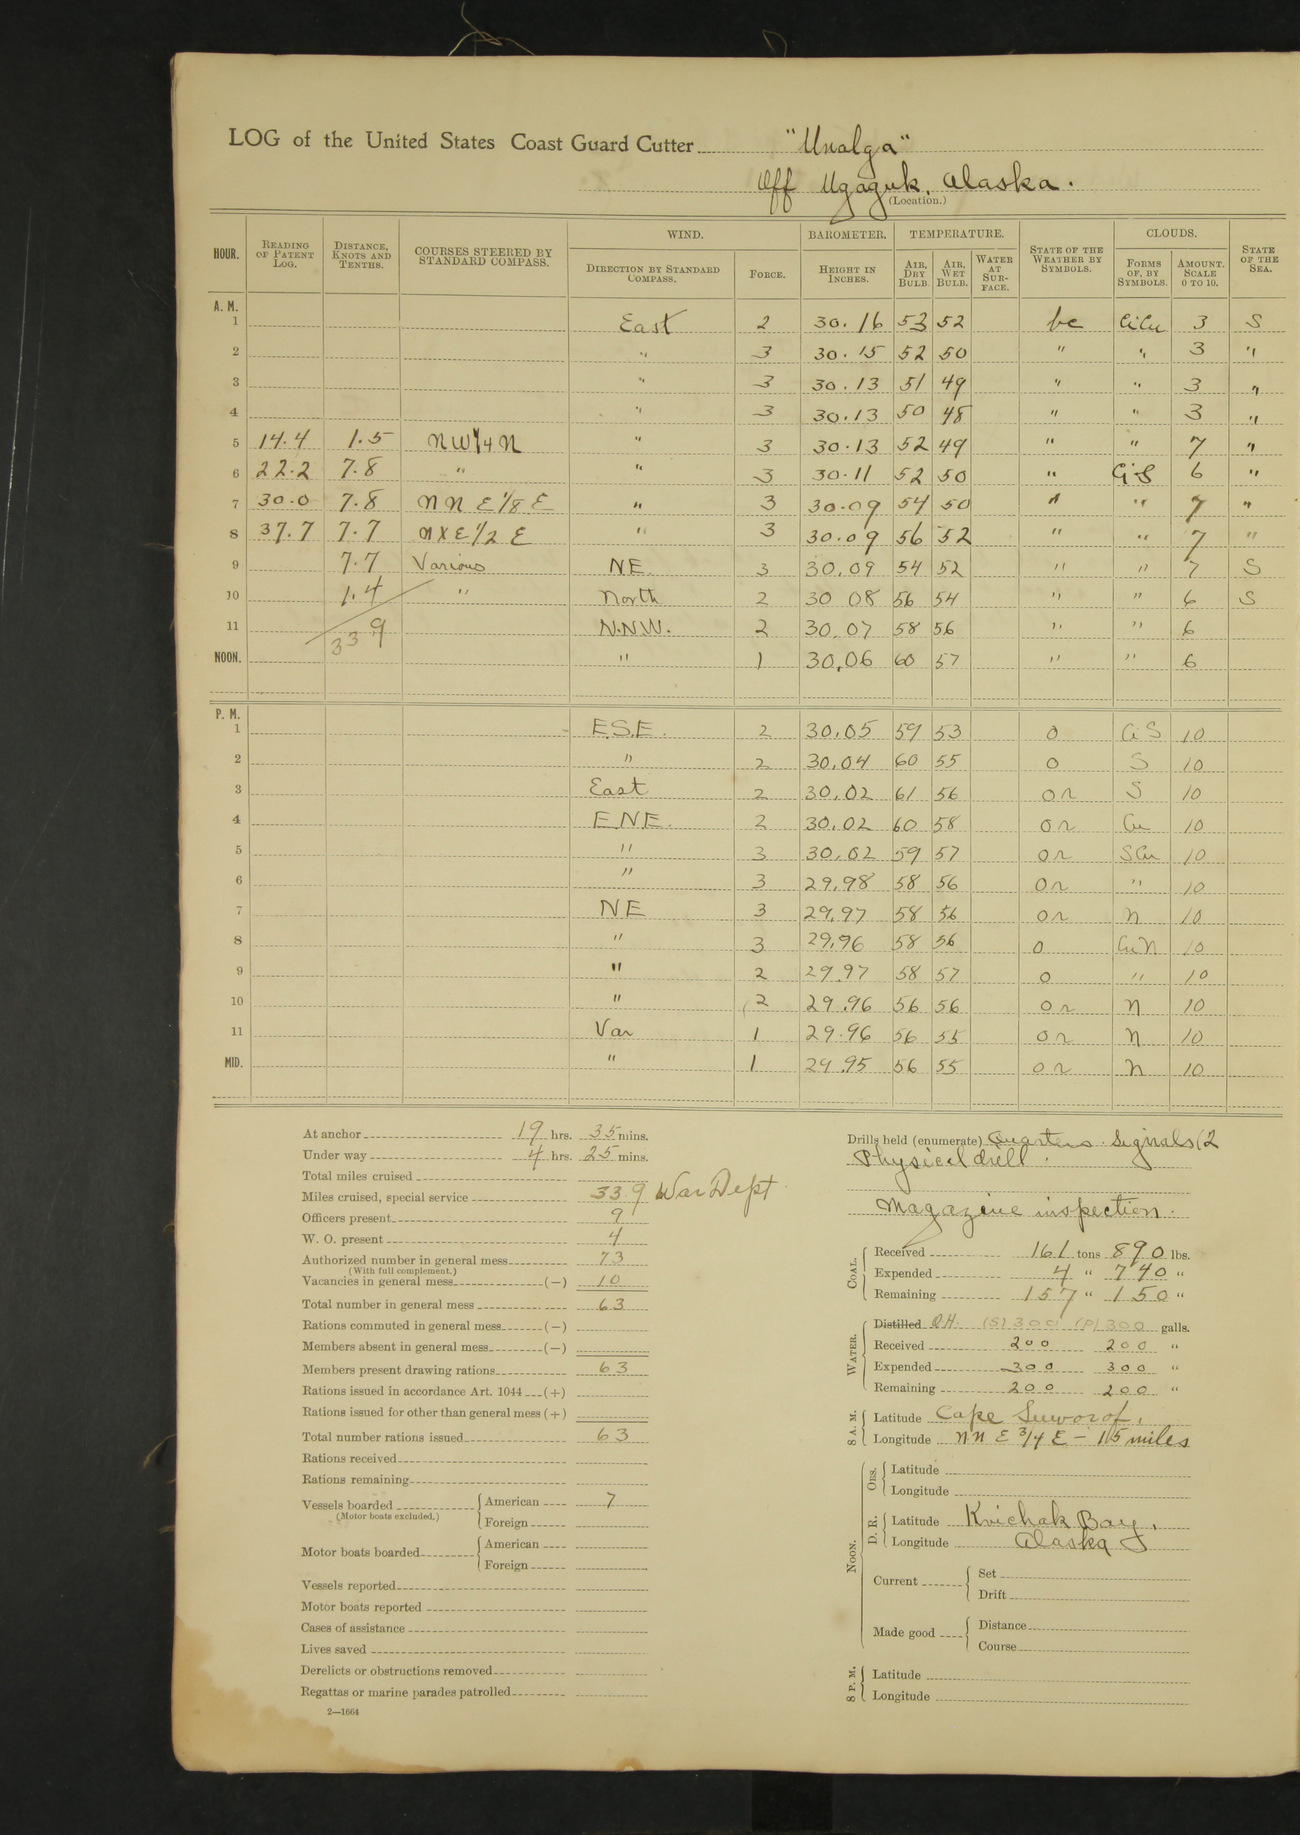 LOG of the United States Coast Guard Cutter "Unalga"
Off Ugaguk, Alaska.
(Location.)
HOUR. READING OF PATENT LOG. DISTANCE, KNOTS AND TENTHS. COURSES STEERED BY STANDARD COMPASS. WIND. BAROMETER. TEMPERATURE. STATE OF THE WEATHER BY SYMBOLS. CLOUDS. STATE OF THE SEA.
DIRECTION BY STANDARD COMPASS. FORCE. HEIGHT IN INCHES. AIR, DRY BULB. AIR, WET BULB. WATER AT SURFACE. FORMS OF, BY SYMBOLS. AMOUNT. SCALE 0 TO 10.
A. M.
1 East 2 30.16 53 52 bc CiCu 3 S
2 " 3 30.15 52 50 " " 3 "
3 " 3 30.13 51 49 " " 3 "
4 " 3 30.13 50 48 " " 3 "
5 14.4 1.5 NW 1/4 N " 3 30.13 52 49 " " 7 "
6 22.2 7.8 " " 3 30.11 52 50 " CiS 6 "
7 30.0 7.8 NNE 1/8 E " 3 30.09 54 50 " " 7 "
8 37.7 7.7 NXE 1/2 E " 3 30.09 56 52 " " 7 "
9 7.7 Various NE 3 30.09 54 52 " " 7 S
10 1.4 " North 2 30 08 56 54 " " 6 S
11 33.9 N.N.W. 2 30.07 58 56 " " 6
NOON. " 1 30.06 60 57 " " 6
P. M.
1 E.S.E. 2 30.05 59 53 o CiS 10
2 " 2 30.04 60 55 o S 10
3 East 2 30.02 61 56 or S 10
4 E.N.E. 2 30.02 60 58 or Cu 10
5 " 3 30.02 59 57 or SCu 10
6 " 3 29.98 58 56 or " 10
7 NE 3 29.97 58 56 or N 10
8 " 3 29.96 58 56 o CuN 10
9 " 2 29.97 58 57 o " 10
10 " 2 29.96 56 56 or N 10
11 Var 1 29.96 56 55 or N 10
MID. " 1 29.95 56 55 or N 10
At anchor 19 hrs. 35 mins.
Under way 4 hrs. 25 mins.
Total miles cruised
Miles cruised, special service 33.9 War Dept.
Officers present 9
W. O. present 4
Authorized number in general mess 73
(With full complement.)
Vacancies in general mess (—) 10
Total number in general mess 63
Rations commuted in general mess (—)
Members absent in general mess (—)
Members present drawing rations 63
Rations issued in accordance Art. 1044 (+)
Rations issued for other than general mess (+)
Total number rations issued 63
Rations received
Rations remaining
Vessels boarded American 7
(Motor boats excluded.) Foreign
Motor boats boarded American
Foreign
Vessels reported
Motor boats reported
Cases of assistance
Lives saved
Derelicts or obstructions removed
Regattas or marine parades patrolled
2—1664
Drills held (enumerate) Quarters. Signals (2
Physical drill.
Magazine inspection.
COAL. Received 161 tons 890 lbs.
Expended 4 " 740 "
Remaining 157 " 150 "
WATER. Distilled O.H. (S) 300 (P) 300 galls.
Received 200 200 "
Expended 300 300 "
Remaining 200 200 "
8 A. M. Latitude Cape Suworof,
Longitude NNE 3/4 E - 15 miles
NOON. OBS. Latitude
Longitude
D. R. Latitude Kvichak Bay,
Longitude Alaska
Current Set
Drift
Made good Distance
Course
8 P. M. Latitude
Longitude